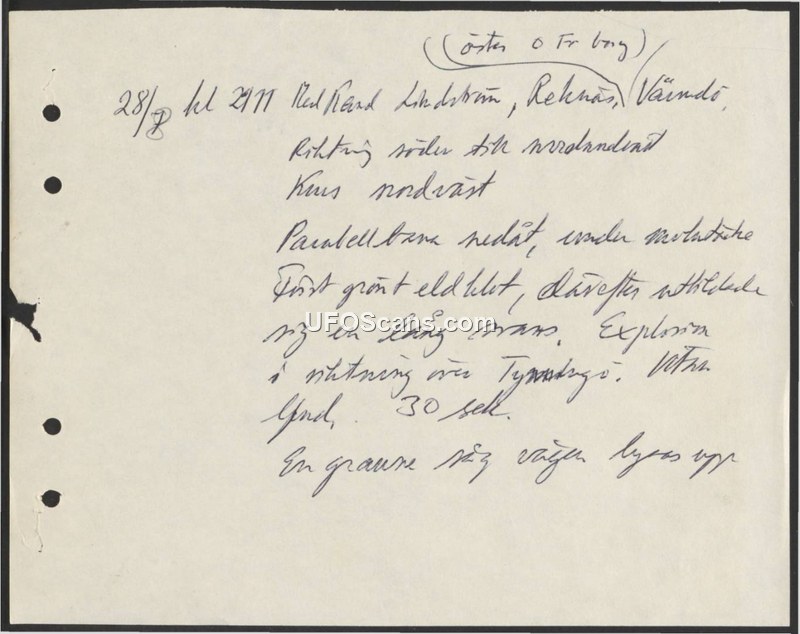 (öster o Fr borg)
28/8 kl 2111 Med Kand Lindström, Reknäs, Värmdö.
Riktning söder till
Kurs nordväst
Parabellbana nedåt, under
Först grönt eldklot, därefter utbildade
sig en lång svans. Explosion
i riktning över Tynningö. Utan
ljud. 30 sek.
En granne såg vägen lysas upp
UFOScans.com